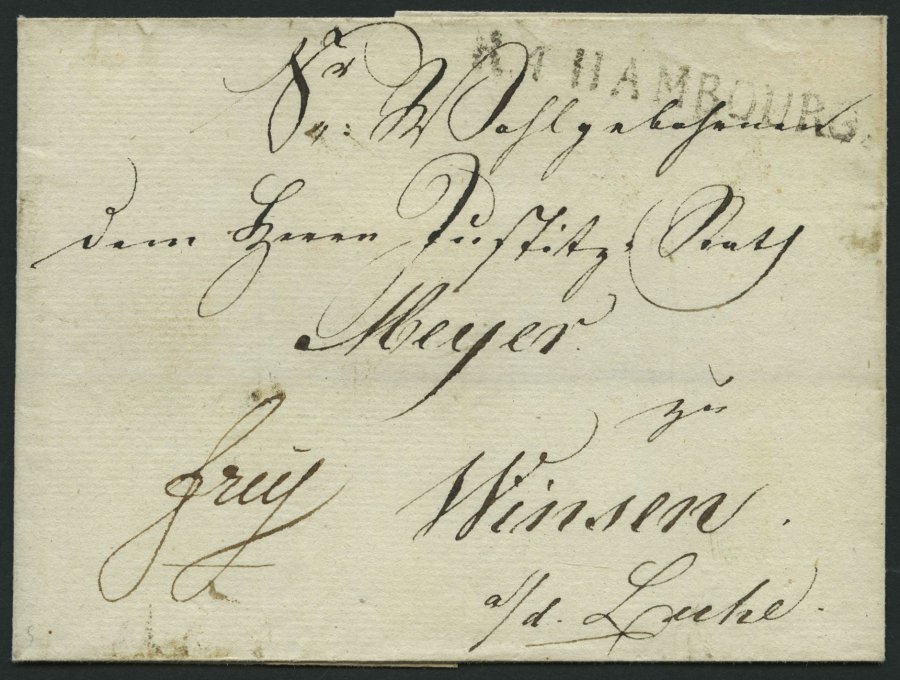 R. 4 HAMBOURG.
Sr Wohlgebohrnen
dem Herrn Justitz Rath
Meyer.
zu
Winsen.
frey
a/d. Luhe.